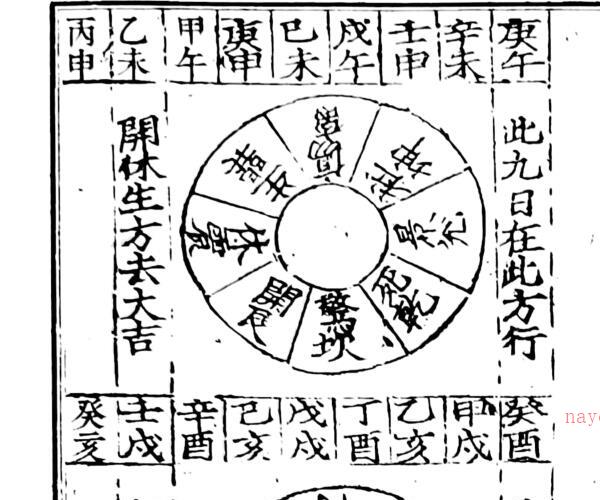 庚午
辛未
壬申
戊午
己未
庚申
甲午
乙未
丙申
此九日在此方行
離傷
坤杜
景兌
死乾
驚坎
開艮
休震
開休生方去大吉
癸酉
甲戌
乙亥
丁酉
戊戌
己亥
辛酉
壬戌
癸亥